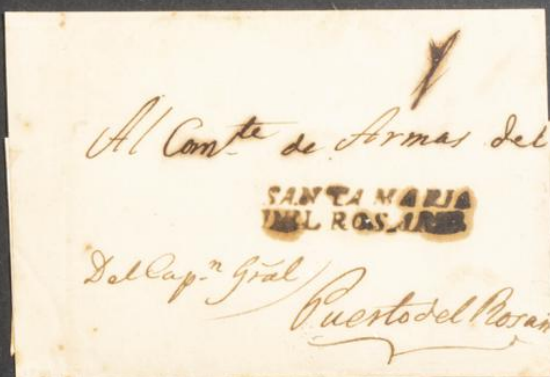 Al Comte de Armas del
SANTA MARIA
DEL ROSARIO
Del Capn Gral
Puerto del Rosari